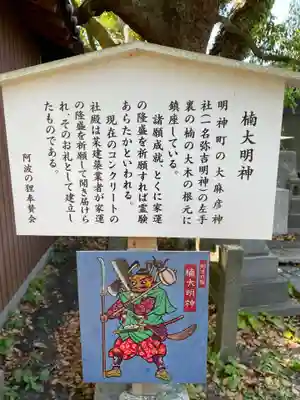 楠大明神
明神町の大麻彦神
社(一名弥吉明神)の左手
裏の楠の大木の根元に
鎮座している。
諸願成就、とくに家運
の隆盛を祈願すれば霊験
あらたかといわれる。
現在のコンクリートの
社殿は某建築業者が家運
の隆盛を祈願して聞き届けら
れ、そのお礼として建立し
たものである。
阿波の狸奉賛会
楠大明神